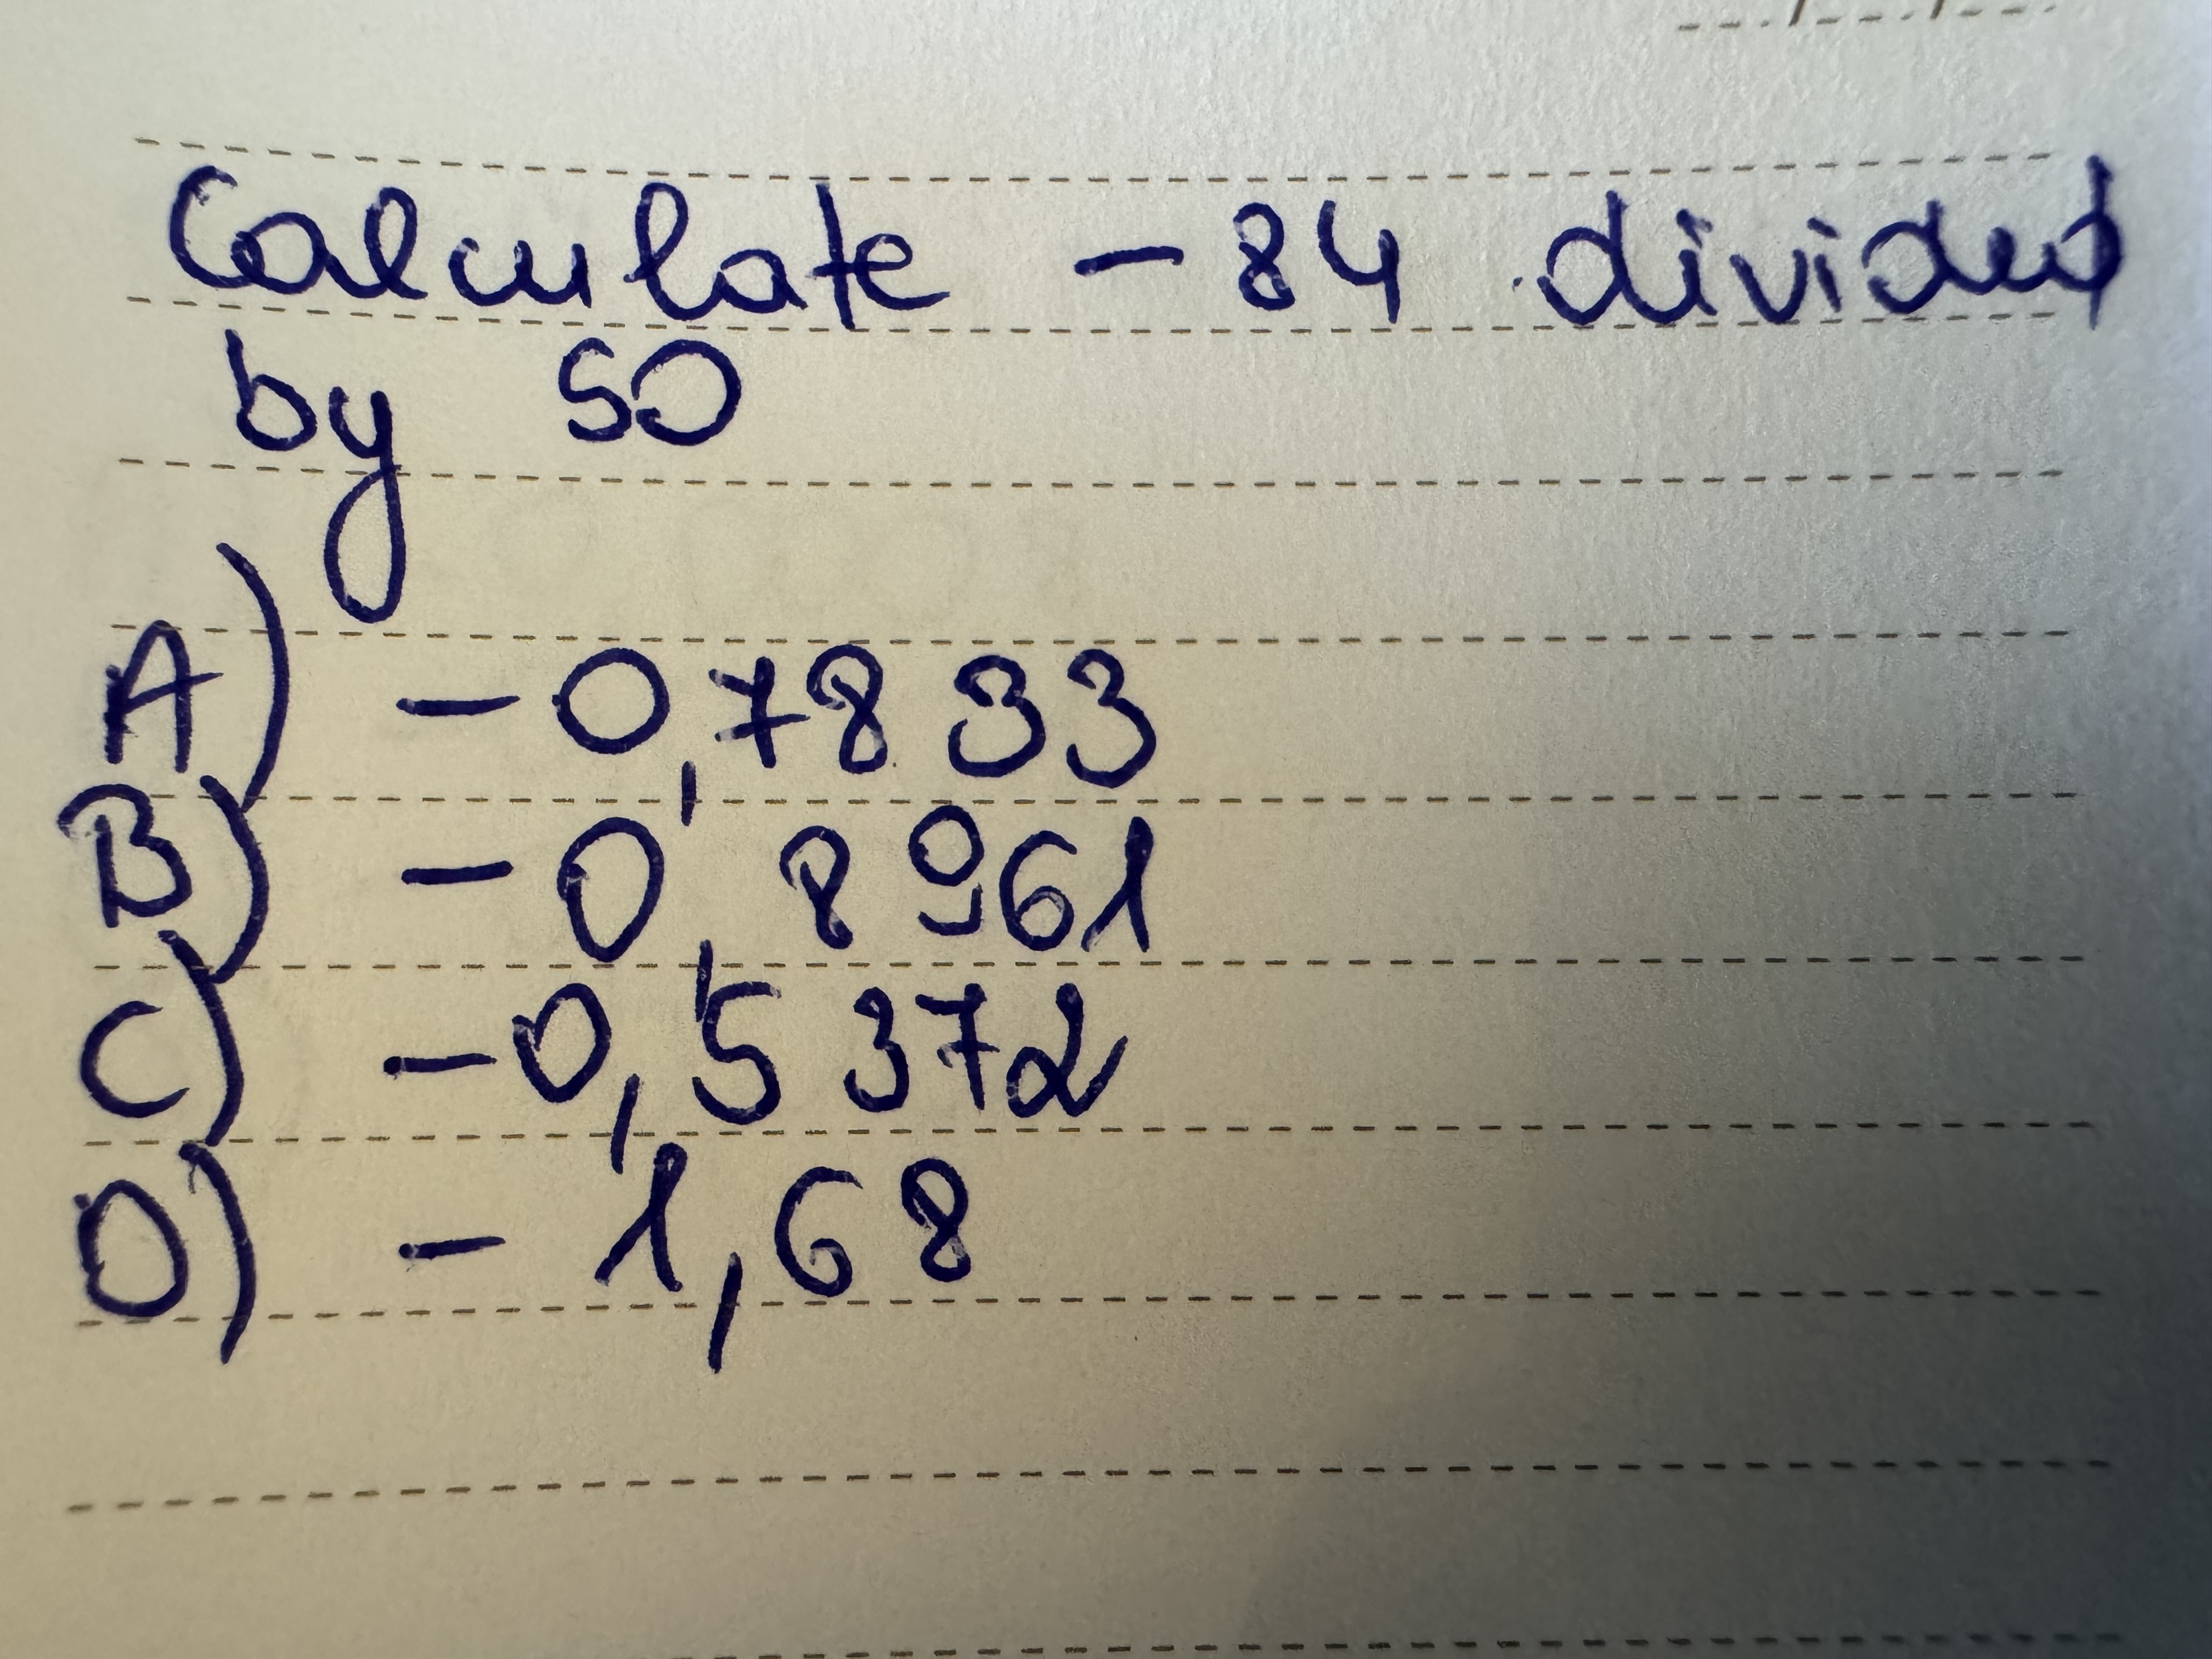 Calculate - 84 divided
by 50
A) - 0,7833
B) - 0,8961
C) - 0,5372
D) - 1,68